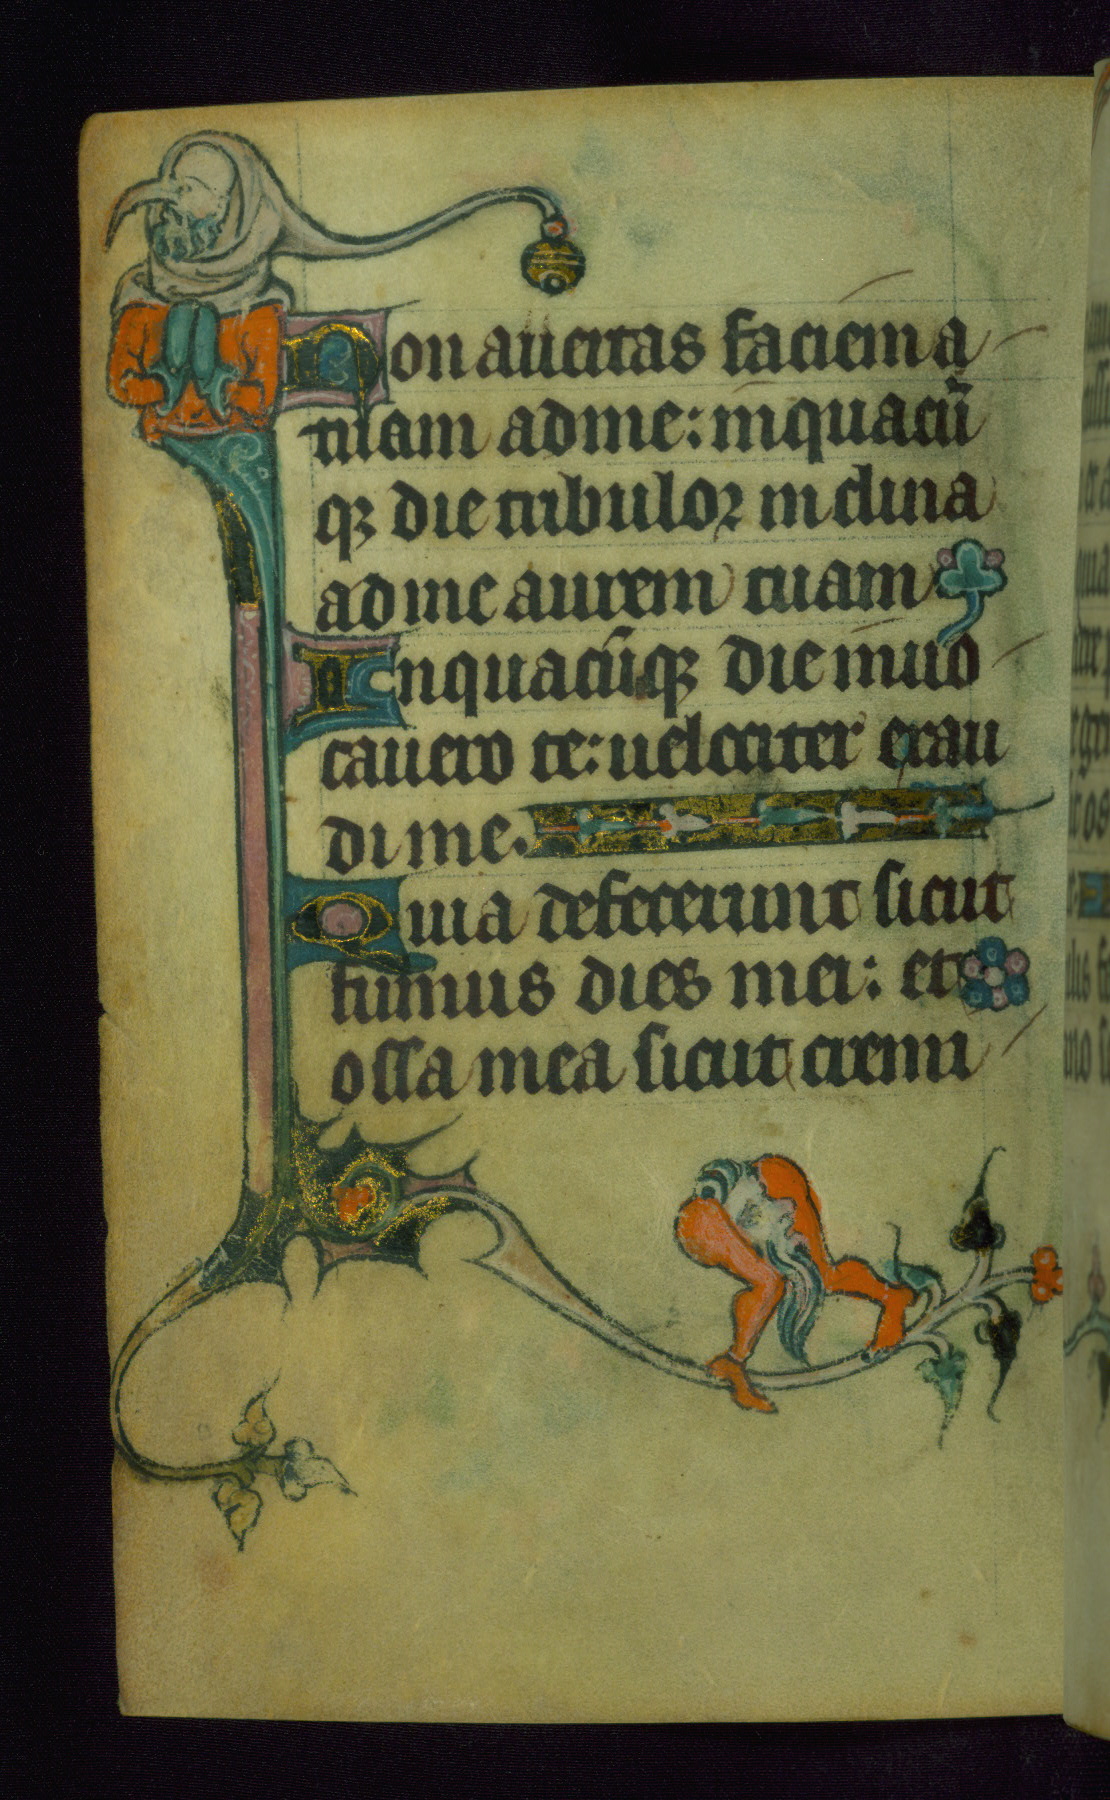 Non auertas faciem
tuam ad me: in quacũ
qꝫ die tribuloꝛ inclina
ad me aurem tuam
In quacũqꝫ die inuo
cauero te: uelociter exau
di me.
Quia defecerunt sicut
fumus dies mei: et
ossa mea sicut cremi